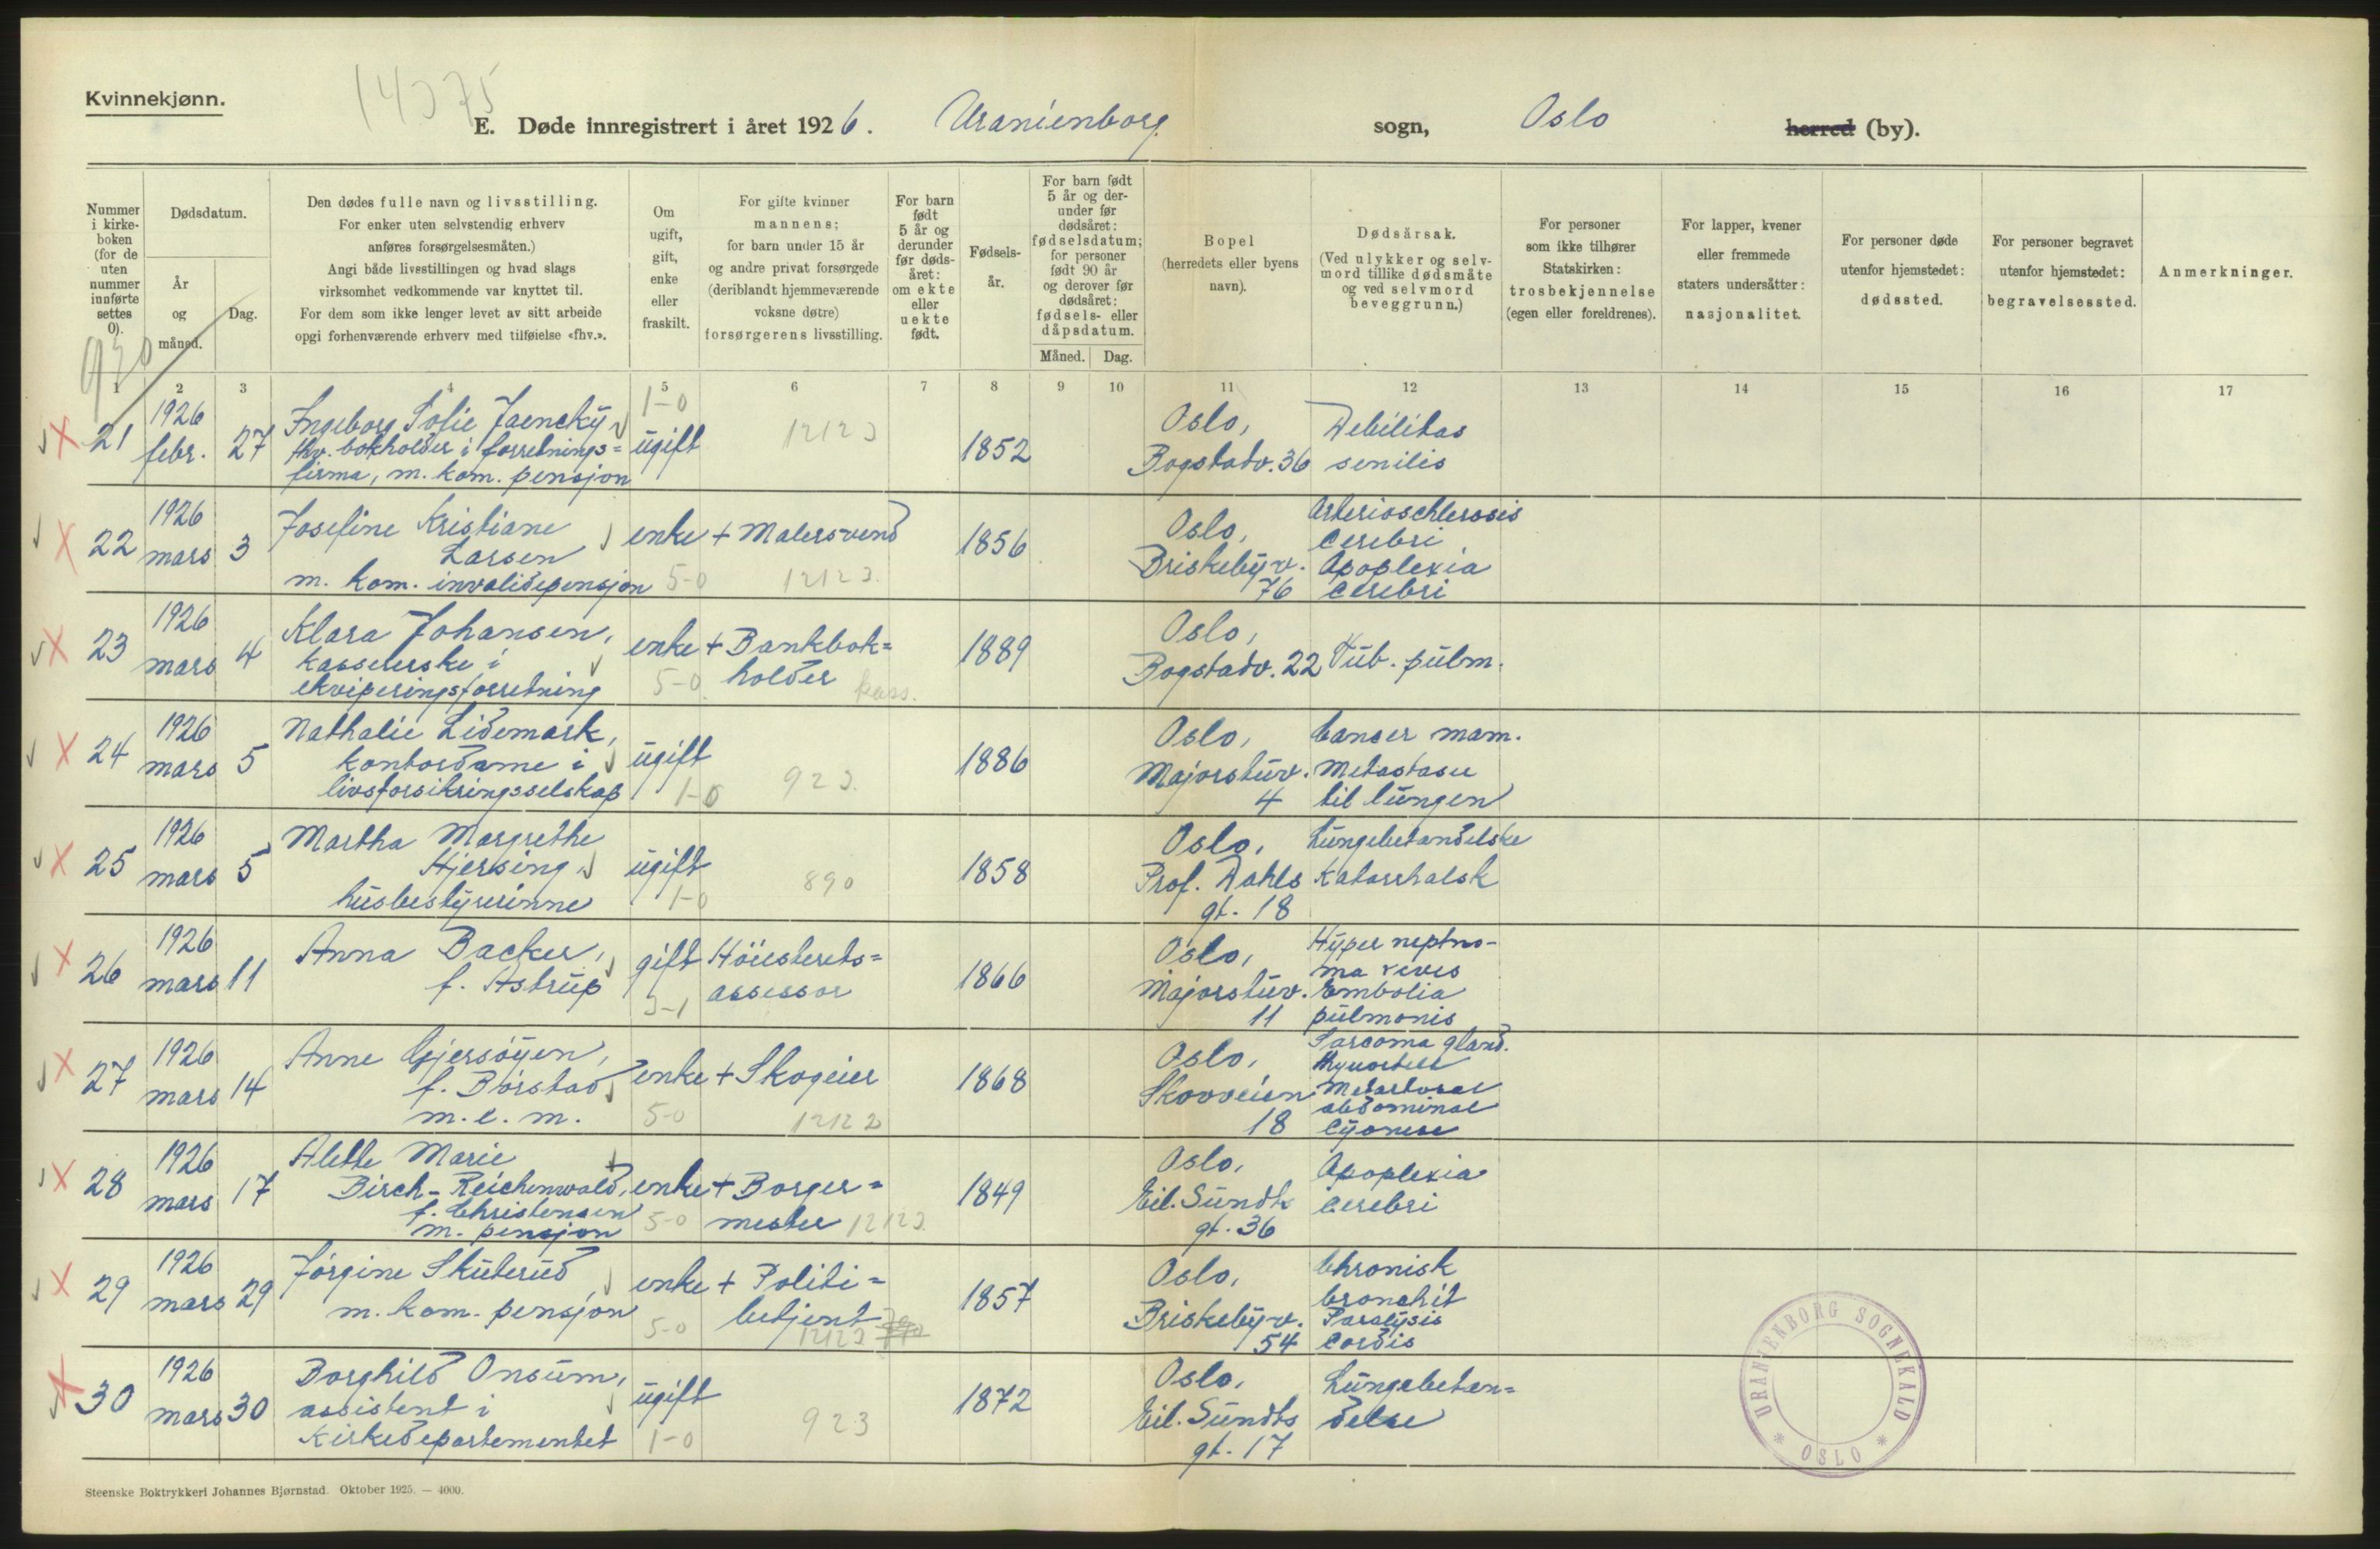 Kvinnekjønn.
E. Døde innregistrert i året 1926. Uranienborg sogn, Oslo herred (by).
Nummer i kirke-boken (for de uten nummer innførte settes 0).
Dødsdatum.
År og måned.
Dag.
Den dødes fulle navn og livsstilling.
For enker uten selvstendig erhverv
anføres forsørgelsesmåten.)
Angi både livsstillingen og hvad slags
virksomhet vedkommende var knyttet til.
For dem som ikke lenger levet av sitt arbeide
opgi forhenværende erhverv med tilføielse «fhv.».
Om ugift, gift, enke eller fraskilt.
For gifte kvinner
mannens;
for barn under 15 år
og andre privat forsørgede
(deriblandt hjemmeværende
voksne døtre)
forsørgerens livsstilling.
For barn født 5 år og derunder før døds-året: om ekte eller uekte født.
Fødsels-år.
For barn født 5 år og der-under før dødsåret: fødselsdatum; for personer født 90 år og derover før dødsåret: fødsels- eller dåpsdatum.
Måned. Dag.
Bopel
(herredets eller byens
navn).
Dødsårsak.
(Ved ulykker og selv-
mord tillike dødsmåte
og ved selvmord
beveggrunn.)
For personer
som ikke tilhører
Statskirken:
trosbekjennelse
(egen eller foreldrenes).
For lapper, kvener
eller fremmede
staters undersåtter:
nasjonalitet.
For personer døde
utenfor hjemstedet:
dødssted.
For personer begravet
utenfor hjemstedet:
begravelsessted.
Anmerkninger.
930
1 2 3 4 5 6 7 8 9 10 11 12 13 14 15 16 17
21 1926 febr. 27
Ingeborg Sofie Jaencky
fhv. bokholder i forretnings=
firma, m. kom. pensjon
1-0
ugift
1212
1852
Oslo,
Bogstadv. 36
Debilitas
senilis
22 1926 mars 3
Josefine Kristiane
Larsen
m. kom. invalidepensjon
enke
5-0
+ Malersvend
1212
1856
Oslo,
Briskebyv.
76
Arterioschlerosis
cerebri
Apoplexia
cerebri
23 1926 mars 4
Klara Johansen,
kassererske i
ekviperingsforretning
enke
5-0
+ Bankbok=
holder
kass.
1889
Oslo,
Bogstadv. 22
Tub. pulm.
24 1926 mars 5
Nathalie Lidemark,
kontordame i
livsforsikringsselskap
ugift
1-0
1886
Oslo,
Majorstuv.
4
Cancer mam.
Metastaser
til lungen
25 1926 mars 5
Martha Margrethe
Hjersing,
husbestyrerinne
ugift
1-0
890
1858
Oslo,
Prof. Dahls
gt. 18
Lungebetændelse
Katarrhalsk
26 1926 mars 11
Anna Backer,
f. Astrup
gift
Höiesterets=
assessor
1866
Oslo,
Majorstuv.
11
Hyper nephro-
ma
Embolia
pulmonis
27 1926 mars 14
Anne Gjersöyen,
f. Börstad
m. e. m.
enke
5-0
+ Skogeier
1212
1868
Oslo,
Skovveien
18
Sarcoma gland.
abdominal
28 1926 mars 17
Alette Marie
Birch-Reichenwald,
f. Christensen
m. pensjon
enke
5-0
+ Borger=
mester
1212
1849
Oslo,
Eil. Sundts
gt. 36
Apoplexia
cerebri
29 1926 mars 29
Jörgine Skuterud,
m. kom. pensjon
enke
5-0
+ Politi=
betjent
1212
1857
Oslo,
Briskebyv.
54
Chronisk
bronchit
Paralysis
cordis
30 1926 mars 30
Borghild Onsum,
assistent i
Kirkedepartementet
ugift
1-0
923
1872
Oslo,
Eil. Sundts
gt. 17
Lungebeten=
delse
URANIENBORG SOGNEKALD * OSLO *
Steenske Boktrykkeri Johannes Bjørnstad. Oktober 1925. — 4000.